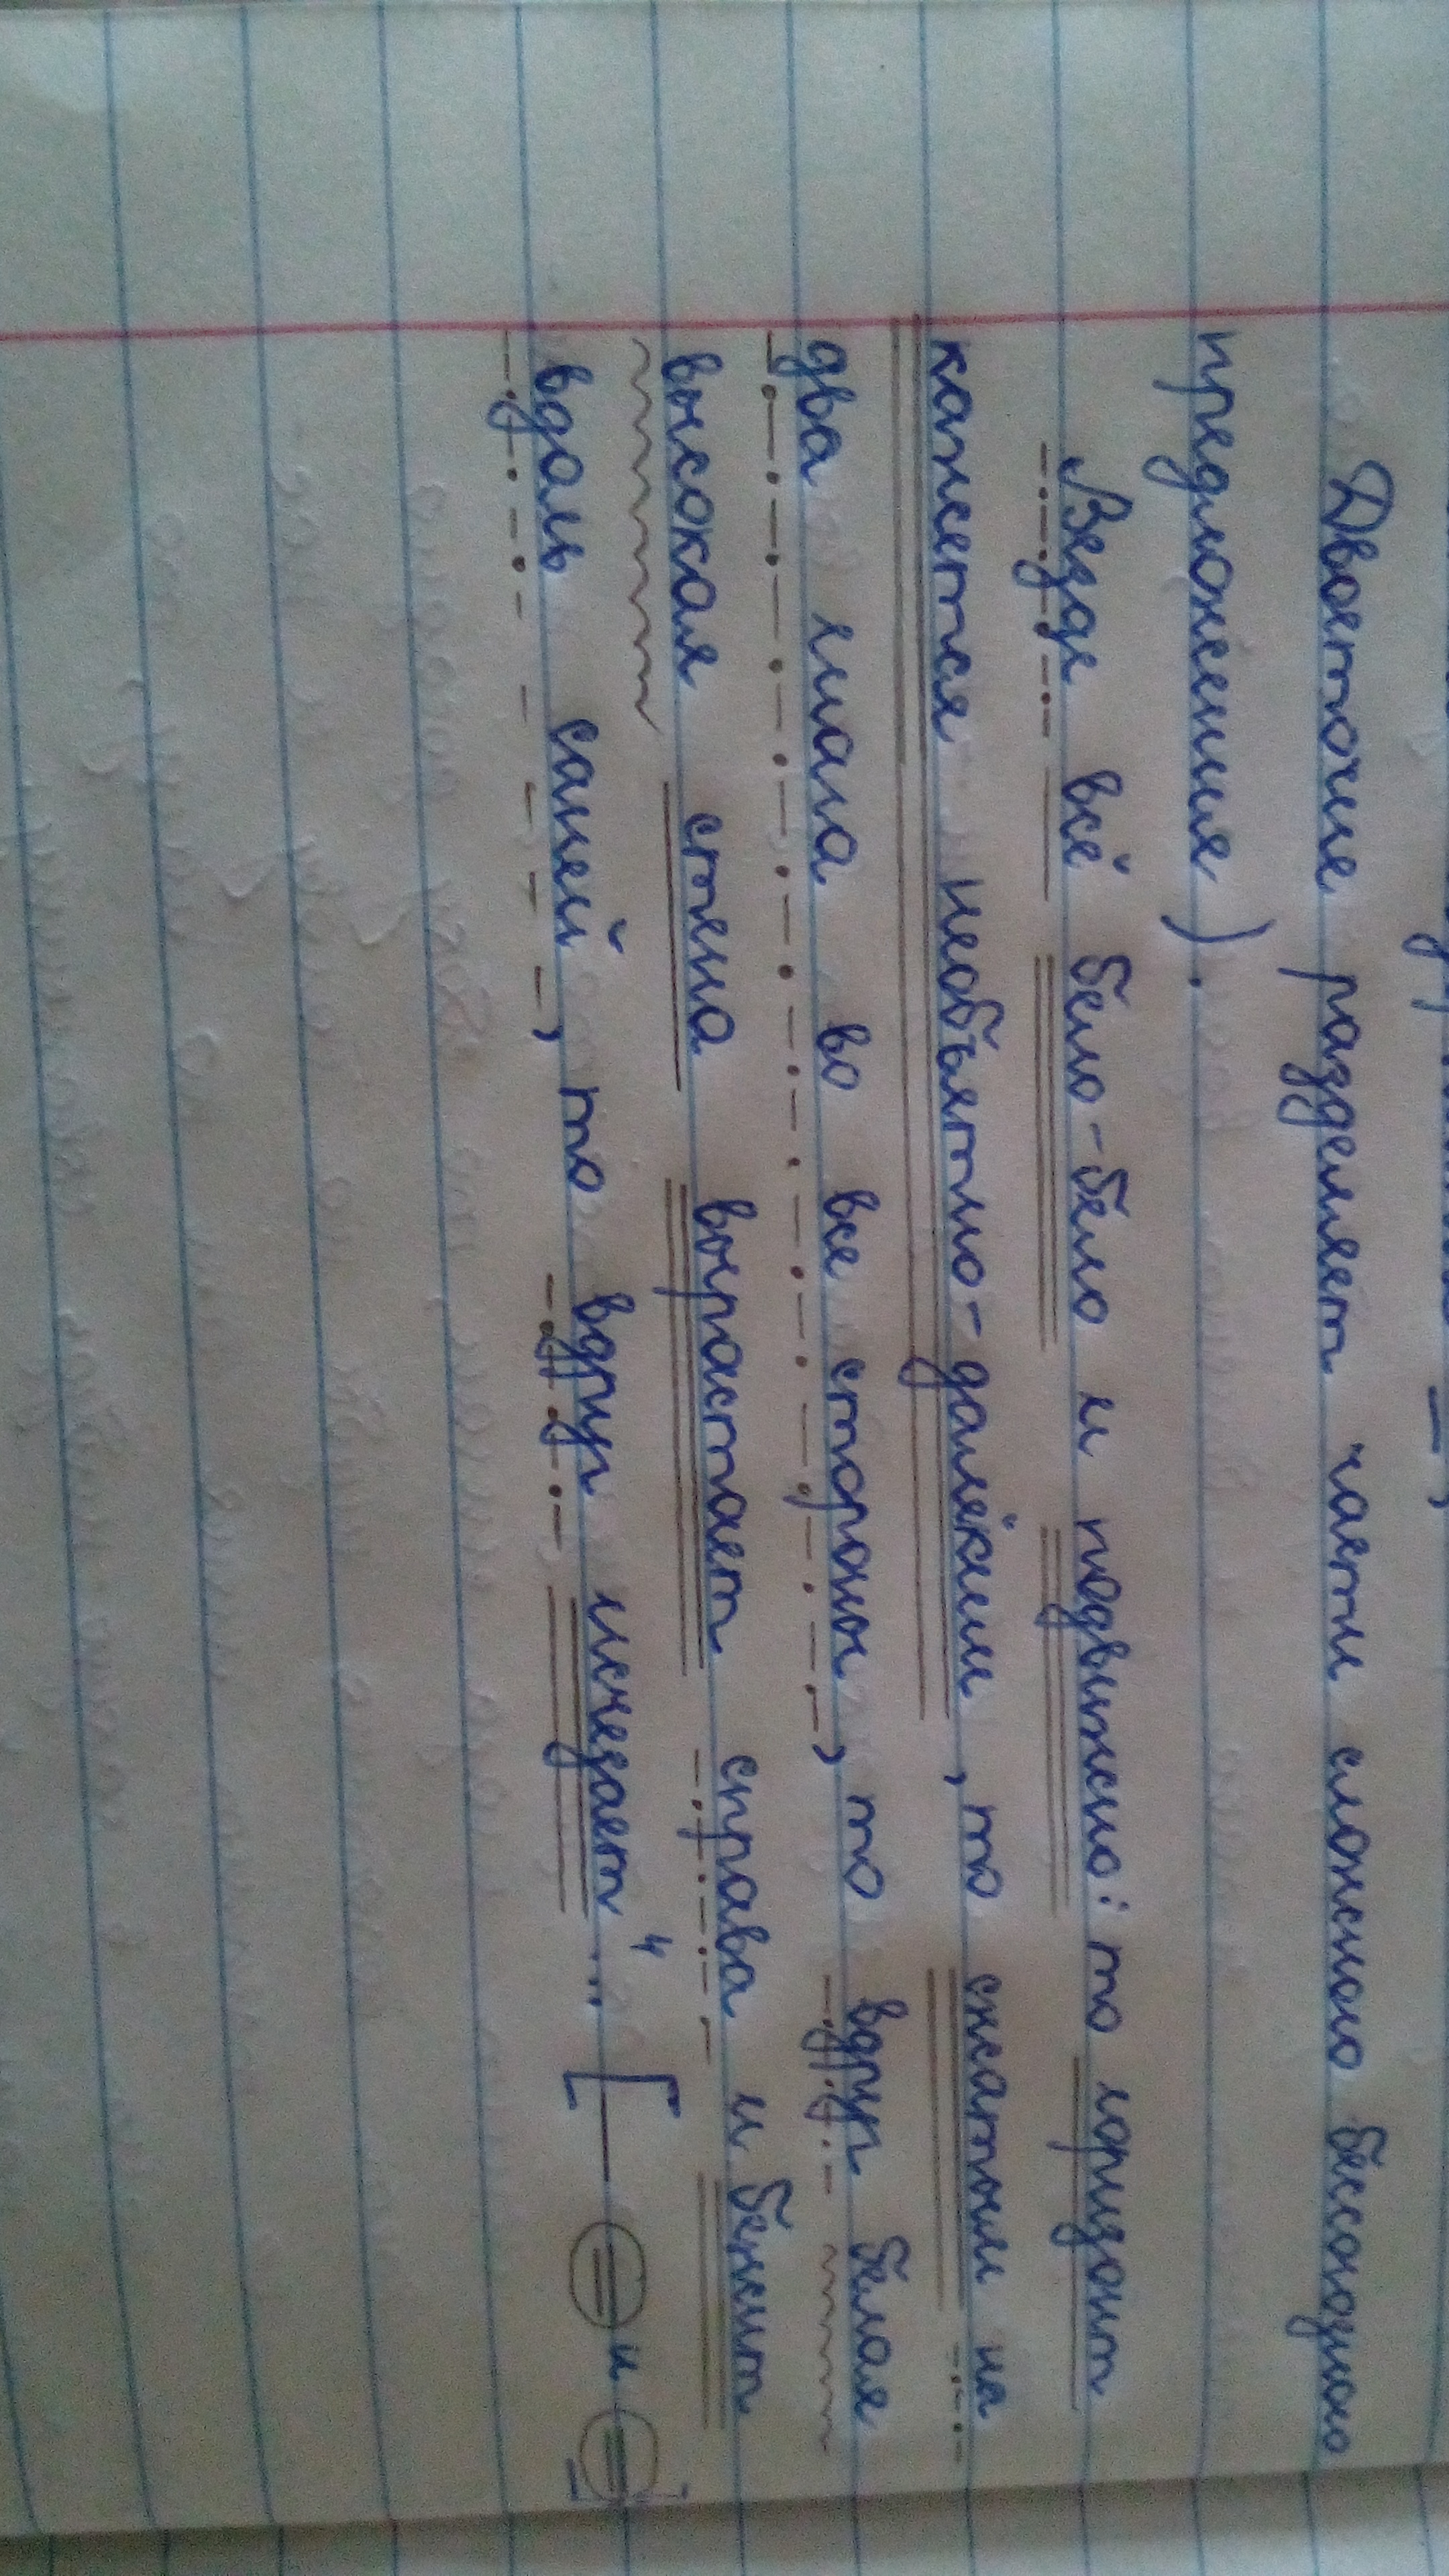 Двоеточие разделяет части сложного бессоюзного
предложения).
Везде всё бело-бело и подвижно: то горизонт
кажется необъятно-далёким, то сжатым на
два шага во все стороны, то вдруг белая
высокая стена вырастает справа и бежит
вдоль саней, то вдруг исчезает... 4 [— = и =]